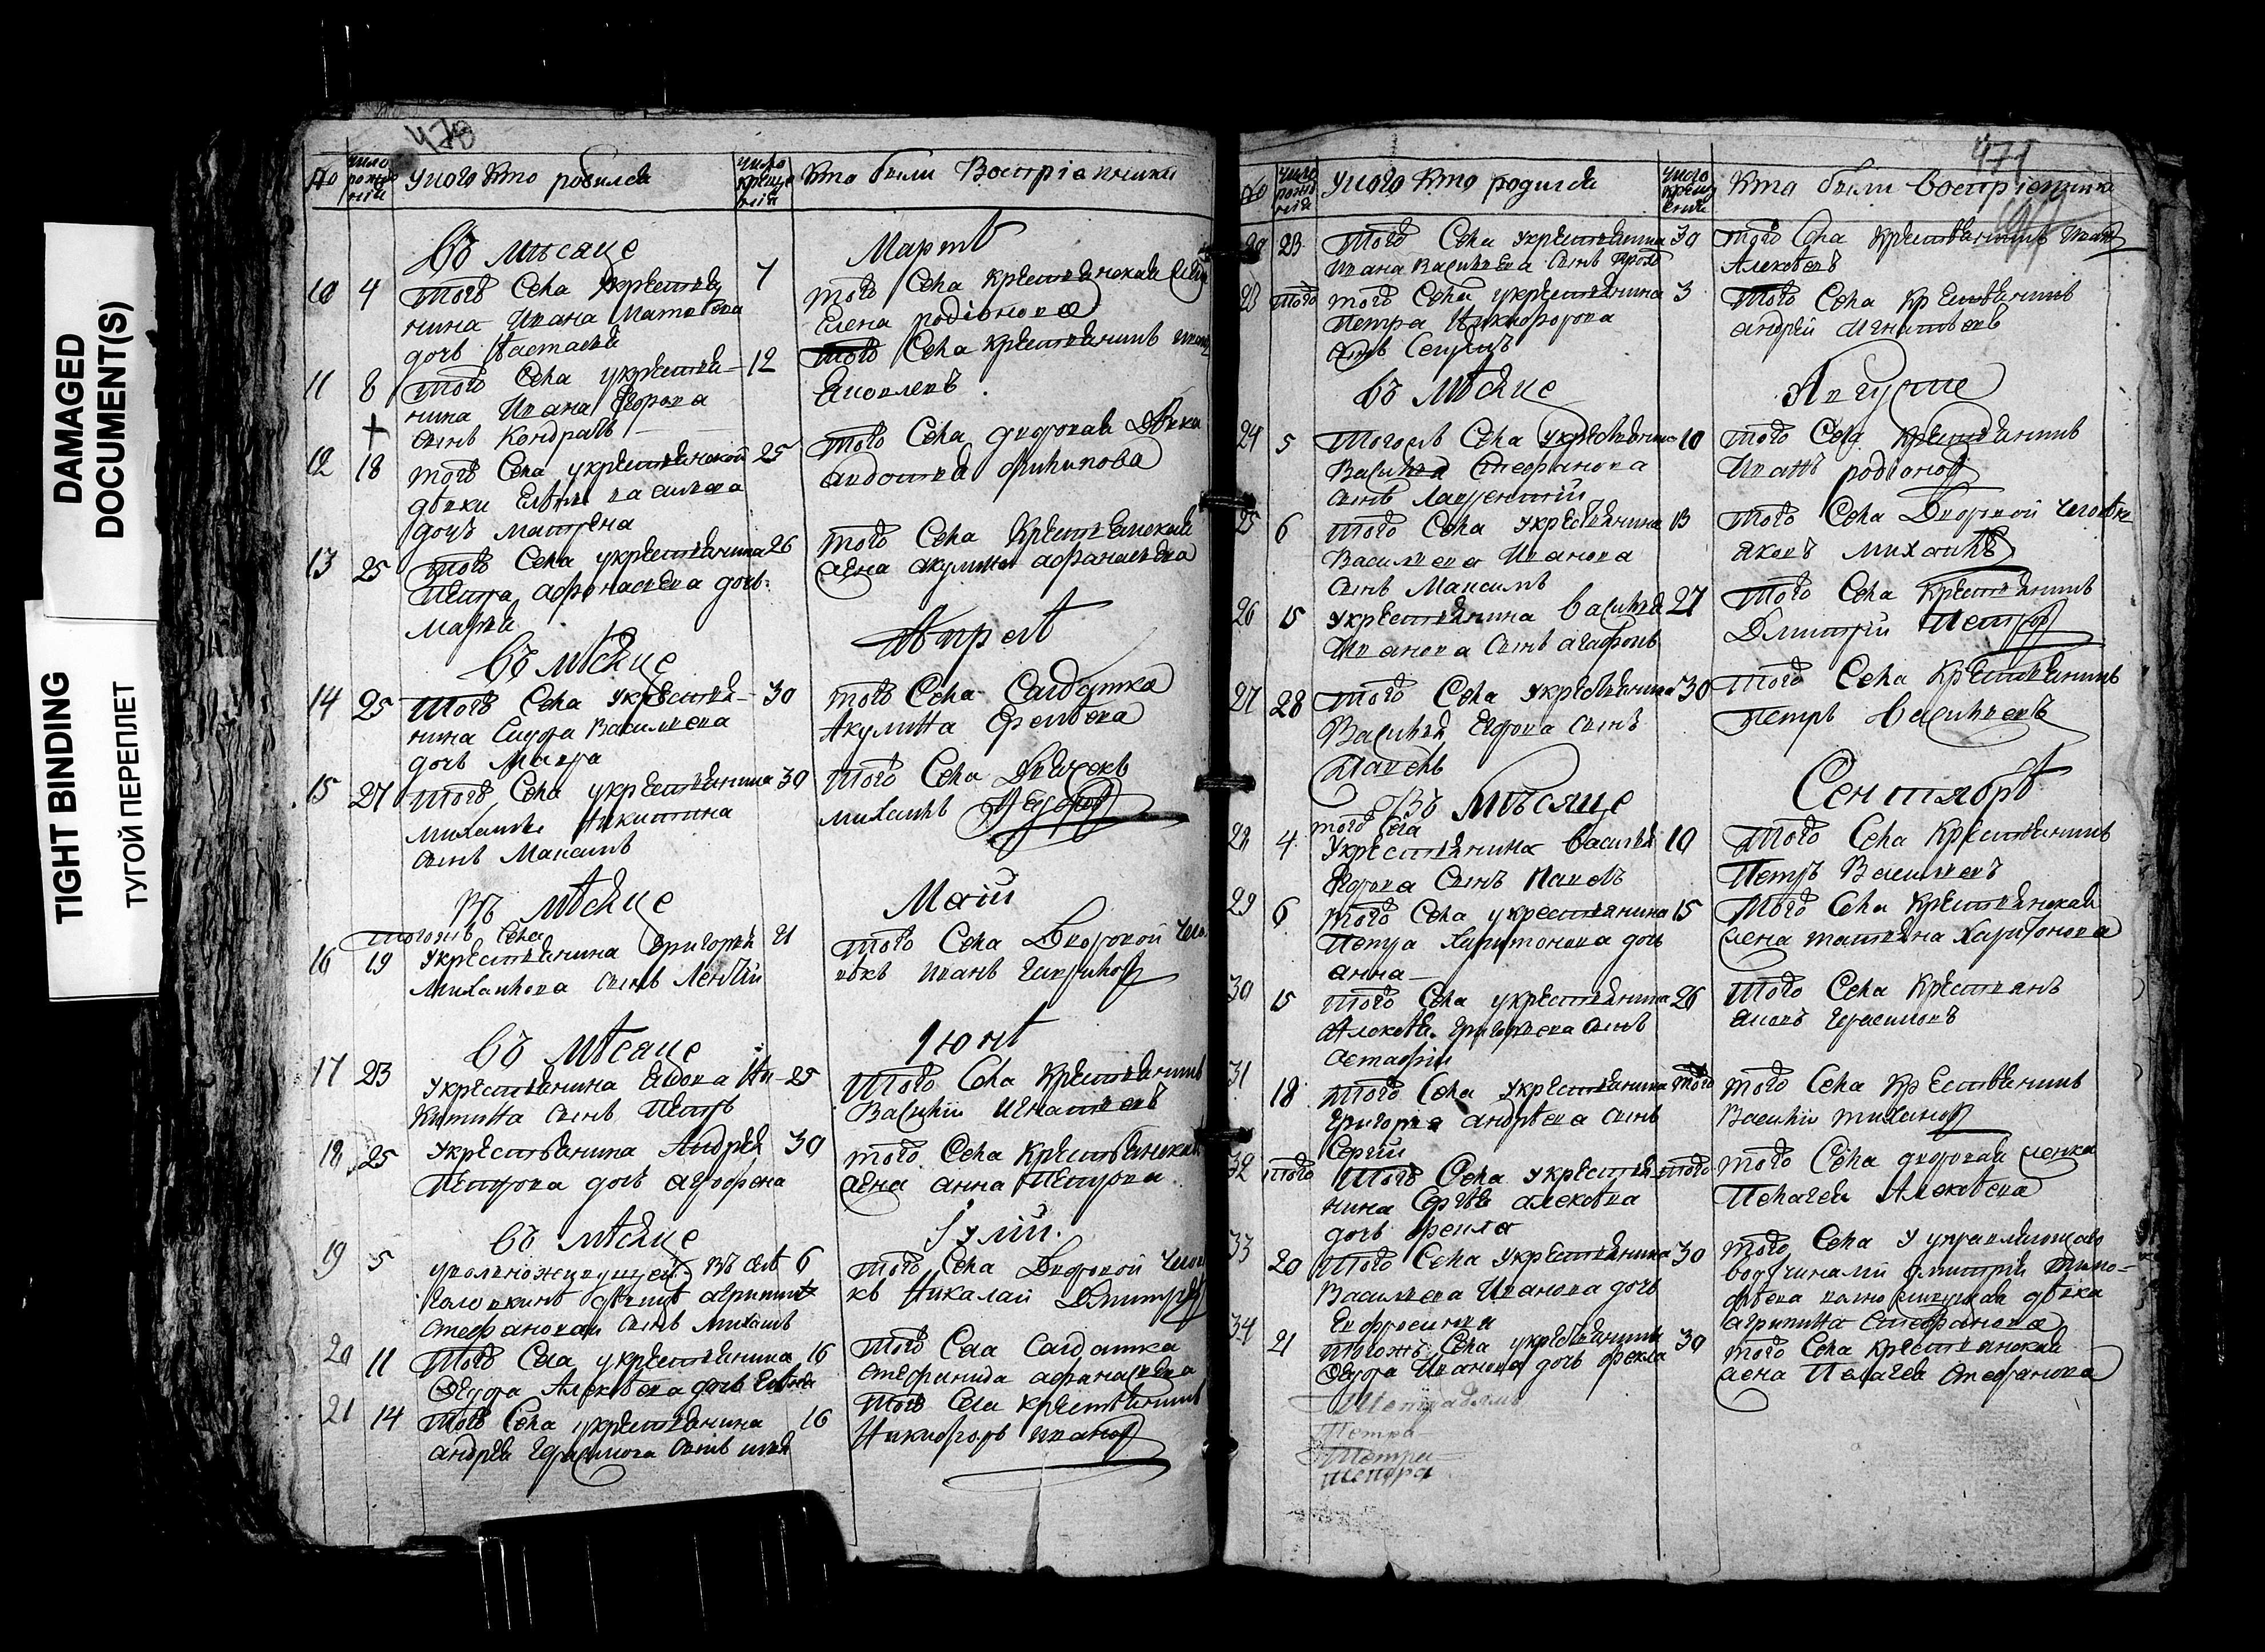 DAMAGED
DOCUMENT(S)
TIGHT BINDING
ТУГОЙ ПЕРЕПЛЕТ
470
№
число рождения
У кого кто родился
число крещения
Кто были Восприемники
Въ мѣсяце
Мартѣ
10 4 того Села укрестья 7
нина Ивана Матвеева
дочь Настасья
того Села крестьянская
Елена родіонова
11 8 того Села укрестья 12
нина Ивана Егорова
сынъ Кондратъ
того Села крестьянинъ
Яковлевъ
12 18 того Села укрестьянской 25
дѣвки Елены васильева
дочь матрена
того Села дворовая Дѣвка
авдотья филипова
13 25 того Села укрестьянина 26
Петра афонасьева дочь
Марья
того Села Крестьянская
жена акулина афанасьева
Въ мѣсяце
Апрелѣ
14 25 того Села укрестья 30
нина Сидора Васильева
дочь Мавра
того Села Салдатка
Акулина
15 27 того Села укрестьянина 30
михаилы Никитина
сынъ Максимъ
того Села Дьячекъ
михаилъ Федоровъ
въ мѣсяце
Маіи
тогожъ Села
16 19 Укрестьянина Григорья 21
Михаилова сынъ Леонтій
того Села Дворовой чело
вѣкъ иванъ Гавриловъ
Въ мѣсяце
Іюнѣ
17 23 укрестьянина Ни 25
китина сынъ Петръ
того Села Крестьянинъ
Василіи Игнатьевъ
18 25 укрестьянина Андрея 30
Петрова дочь агрофена
того Села Крестьянская
жена анна Петрова
въ мѣсяце
Іуліи
19 5 6
Стефановой сынъ михаилъ
того Села Дворовой чело
къ Николаи Дмитревъ
20 11 того Села укрестьянина 16
Федора Алексѣева дочь Евгенія
того Села Салдатка
Степанида афанасьева
21 14 того Села укрестьянина 16
андрея Герасимова сынъ илья
того Села крестьянинъ
Никифоръ ивановъ
471
№
число рождения
У кого кто родился
число крещения
Кто были восприемники
23 того Села укрестьянина 30
Ивана Васильева сынъ
того Села крестьянинъ
Алексѣевъ
23 того того Села укрестьянина 3
Петра Никифорова
сынъ
того Села крестьянинъ
андрей Игнатьевъ
въ мѣсяце
Августе
24 5 тогожъ Села укрестьянина 10
Василья Стефанова
сынъ Лаврентій
того Села крестьянинъ
Иванъ родіоновъ
25 6 того Села укрестьянина 13
Васильева Иванова
сынъ Максимъ
того Села Дворовой человѣкъ
яковъ михаиловъ
26 15 укрестьянина Василья 27
Иванова сынъ агафонъ
того Села крестьянинъ
Дмитрій Петровъ
27 28 того Села укрестьянина 30
Василья Егорова сынъ
Павелъ
того Села Крестьянинъ
Петръ Васильевъ
Въ Мѣсяце
Сентябрѣ
того Села
28 4 укрестьянина Василья 10
Егорова сынъ Павелъ
того Села Крестьянинъ
Петръ Васильевъ
29 6 того Села укрестьянина 15
Петра Харитонова дочь
анна
того Села Крестьянская
жена татьяна Харитонова
30 15 того Села укрестьянина 26
Алексѣя Григорьева сынъ
астафіи
того Села Крестьянъ
яковъ Герасимовъ
31 18 того Села укрестьянина того
Григорья андрѣева сынъ
Сергій
того Села Крестьянинъ
Василіи тихановъ
32 того того Села укрестья того
нина Сергѣя алексѣева
дочь фекла
того Села дворовая женка
Пелагея Алексѣева
33 20 того Села укрестьянина 30
Васильева Иванова дочь
Ефросинья
того Села у управляющаго
вотчинами дмитрія тимо
фѣева дѣвка
агрипина Стефанова
34 21 тогожъ Села укрестьянина 30
Федора Иванова дочь фекла
того Села крестьянская
жена Пелагея Стефанова
Петра
Петра
Петра